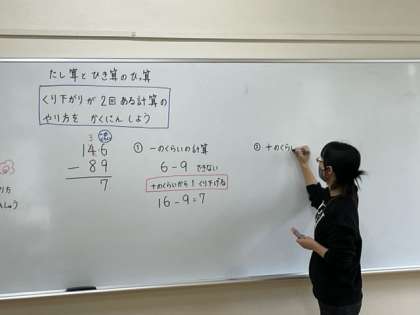 たし算とひき算のひっ算
くり下がりが2回ある計算の
やり方を かくにんしよう
3 10
146
－ 89
7
① 一のくらいの計算
6－9 できない
十のくらいから1くり下げる
16－9＝7
② 十のくらい
り方
しゅう